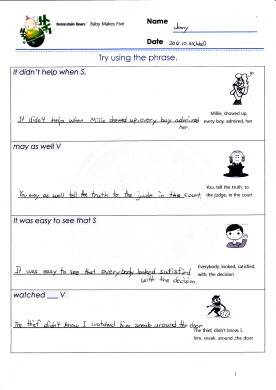 Berenstain Bears Baby Makes Five
Name Jenny
Date 2018.10.31(Wed)
Try using the phrase.
It didn't help when S.
Millie, showed up,
every boy, admired, her
It didn't help when Millie showed up, every boy admired
her.
may as well V
You, tell the truth, to
the judge, in the court
You may as well tell the truth to the jude in the court.
It was easy to see that S
Everybody, looked, satisfied,
with, the decision
It was easy to see that everybody looked satisfied
with the decision.
watched ___ V
The thief didn't know I watched him sneak around the door
The thief, didn't know, I,
him, sneak, around ,the door
1